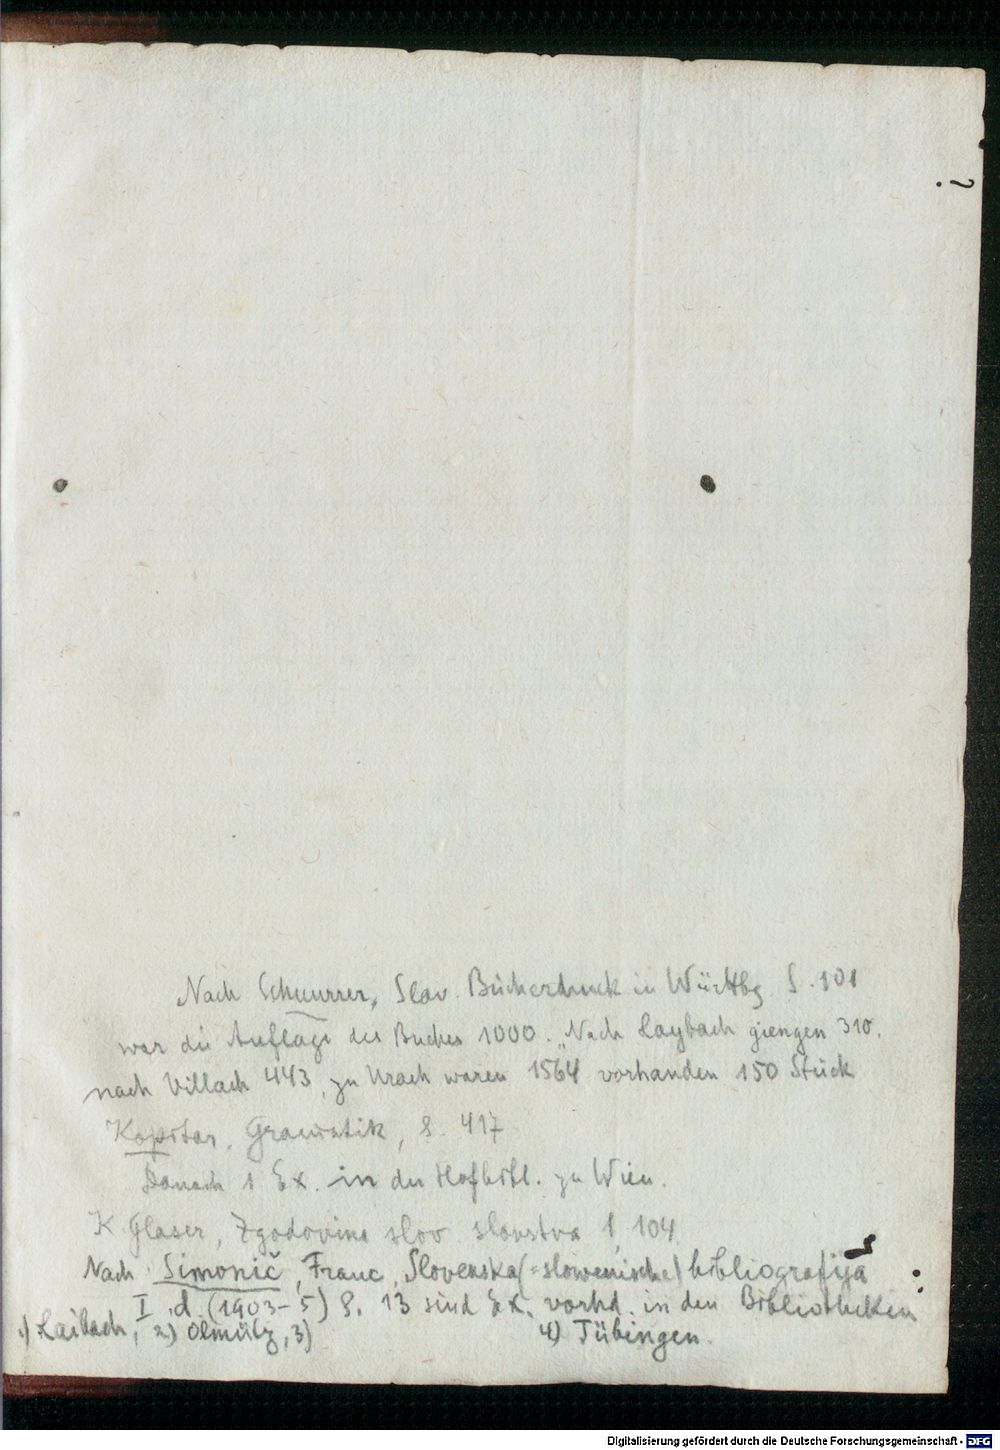 Nach Schnurrer, Slav. Bücherdruck in Württbg. S. 101
war die Auflage des Buches 1000. „Nach Laybach giengen 310.
nach Villach 443, zu Urach waren 1564 vorhanden 150 Stück
Kopitar, Grammatik, S. 417
Danach 1 Ex. in der Hofbibl. zu Wien.
K Glaser, Zgodovina slov. slovstva I, 104
Nach Simonič, Franc, Slovenska (=slowenische) bibliografija
I. d. (1903-5) S. 13 sind Ex. vorhd. in den Bibliotheken
1) Laibach, 2) Olmütz, 3) 4) Tübingen.
Digitalisierung gefördert durch die Deutsche Forschungsgemeinschaft - DFG